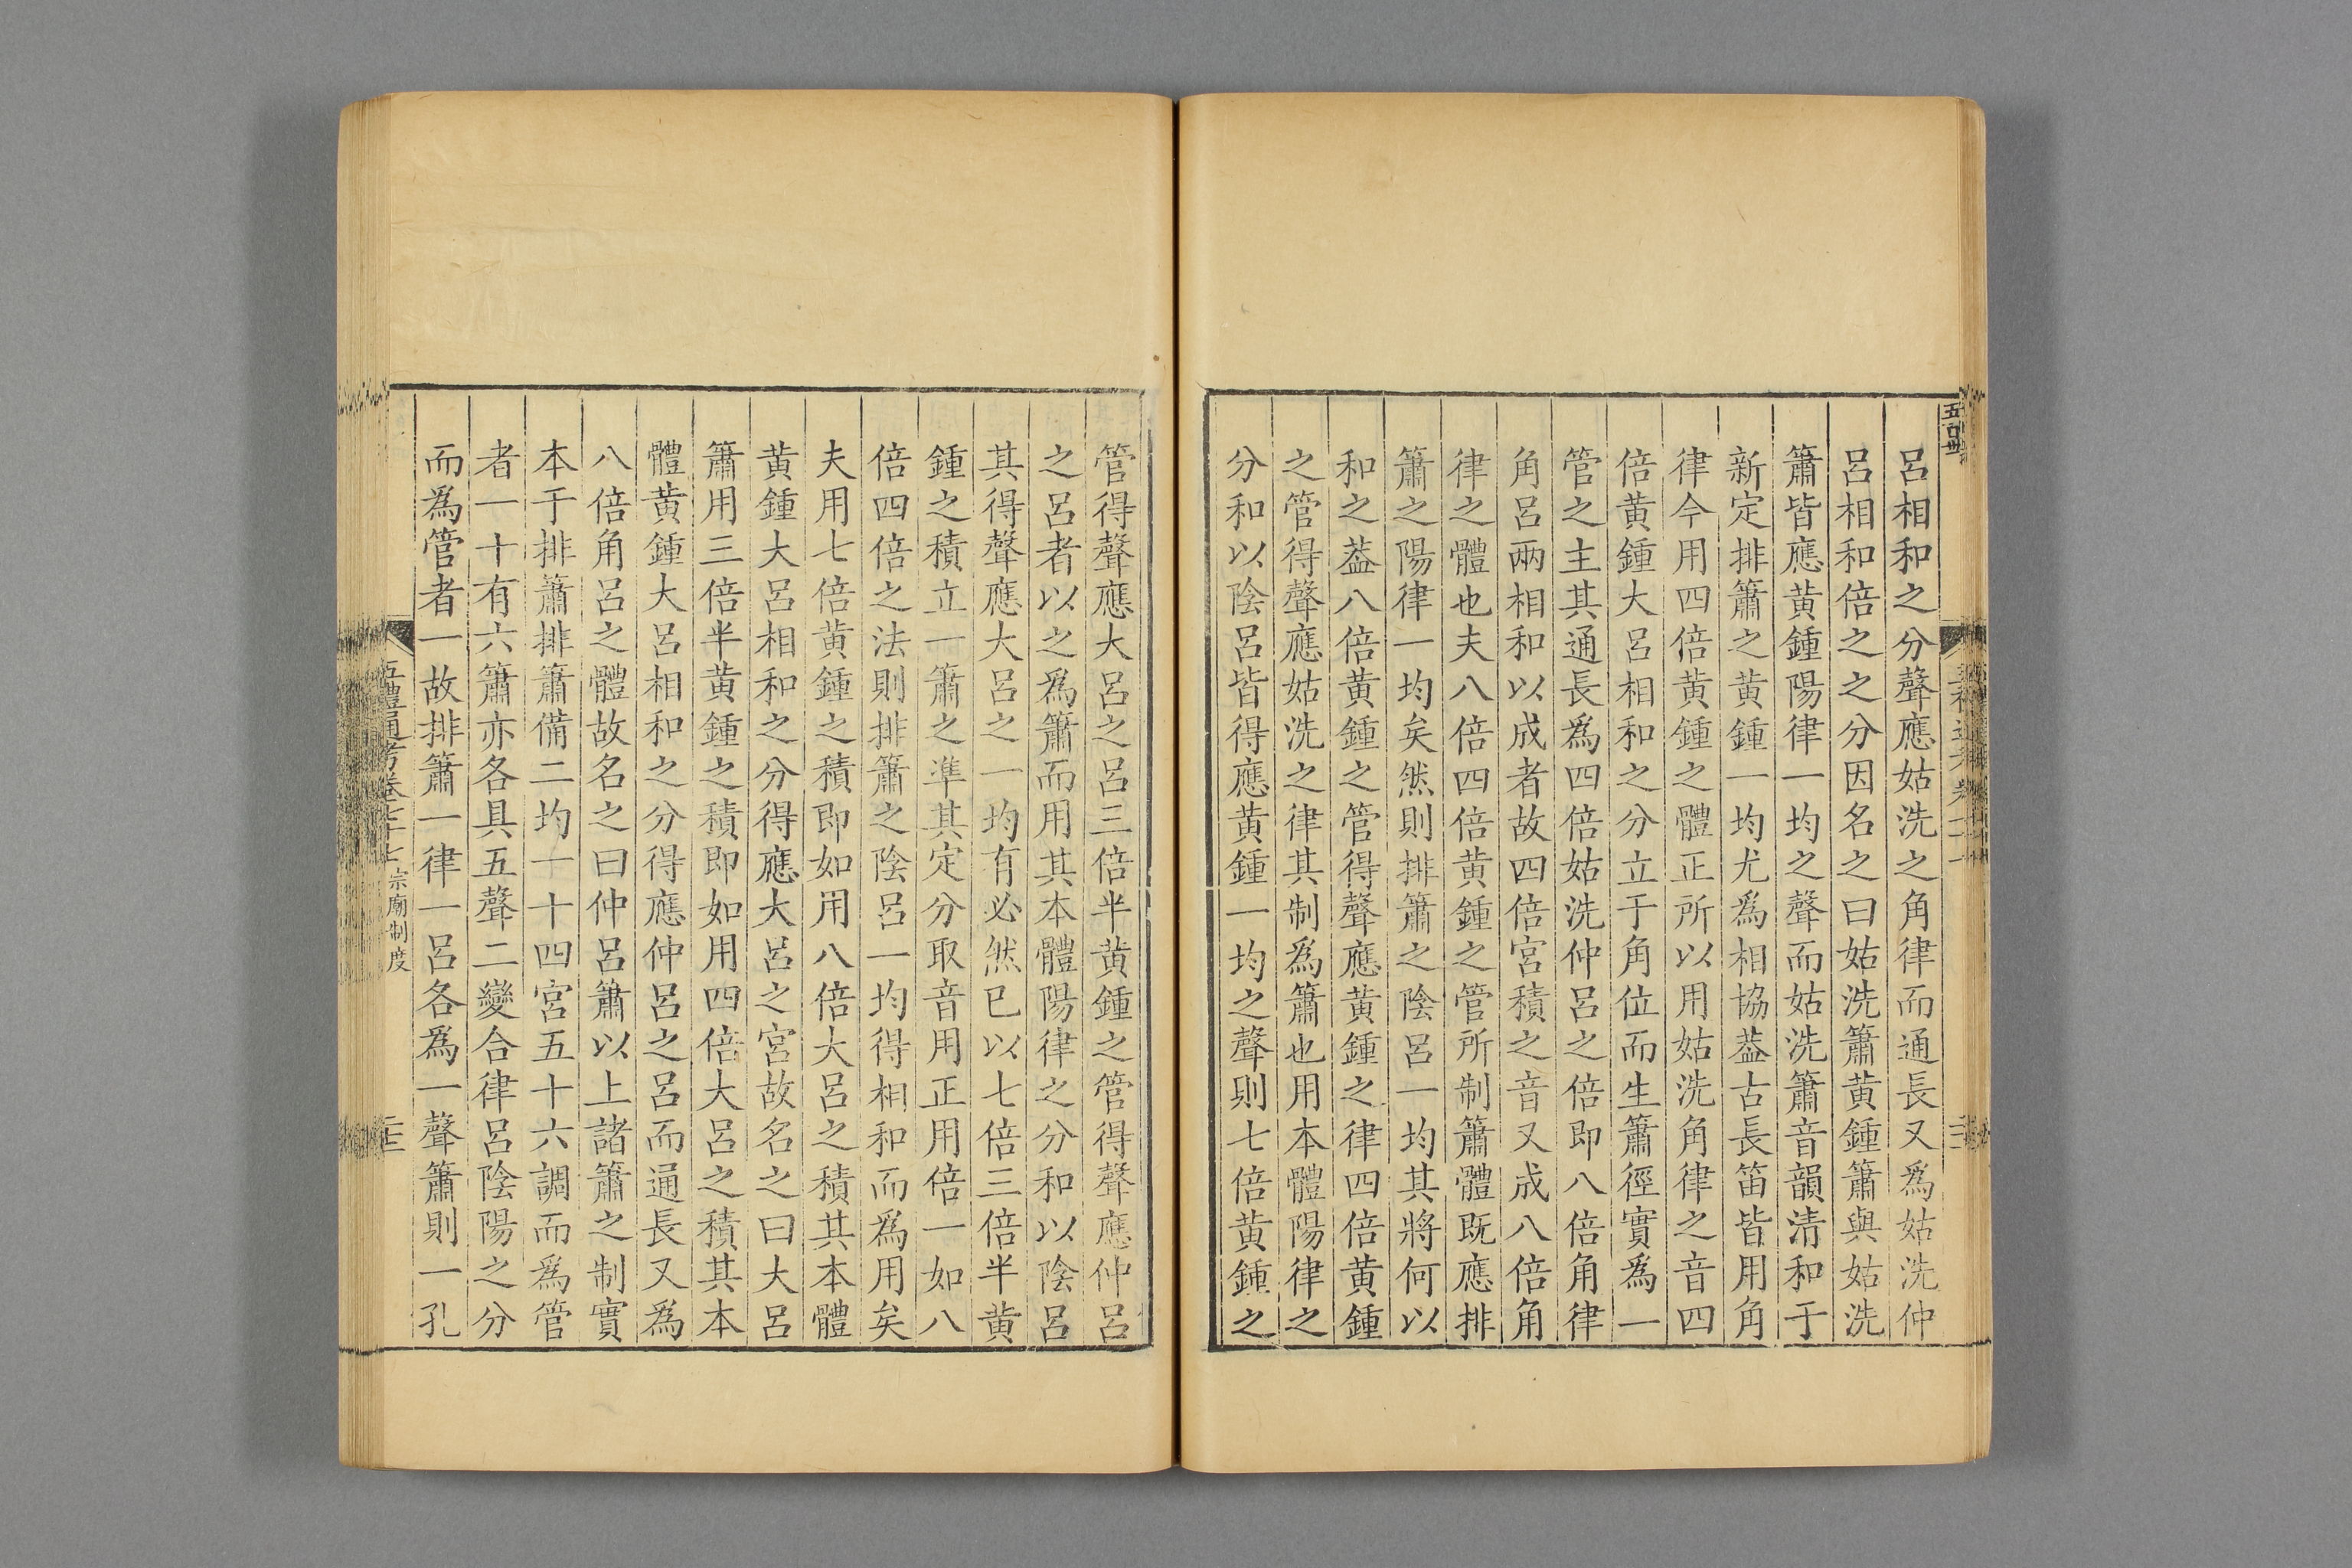 呂相和之分聲應姑洗之角律而通長又爲姑洗仲
呂相和倍之之分因名之曰姑洗簫黃鍾簫與姑洗
簫皆應黃鍾陽律一均之聲而姑洗簫音韻清和于
新定排簫之黃鍾一均尤爲相協葢古長笛皆用角
律今用四倍黃鍾之體正所以用姑洗角律之音四
倍黃鍾大呂相和之分立于角位而生簫徑實爲一
管之主其通長爲四倍姑洗仲呂之倍即八倍角律
角呂兩相和以成者故四倍宮積之音又成八倍角
律之體也夫八倍四倍黃鍾之管所制簫體既應排
簫之陽律一均矣然則排簫之陰呂一均其將何以
和之葢八倍黃鍾之管得聲應黃鍾之律四倍黃鍾
之管得聲應姑洗之律其制爲簫也用本體陽律之
分和以陰呂皆得應黃鍾一均之聲則七倍黃鍾之
管得聲應大呂之呂三倍半黃鍾之管得聲應仲呂
之呂者以之爲簫而用其本體陽律之分和以陰呂
其得聲應大呂之一均有必然已以七倍三倍半黃
鍾之積立一簫之準其定分取音用正用倍一如八
倍四倍之法則排簫之陰呂一均得相和而爲用矣
夫用七倍黃鍾之積即如用八倍大呂之積其本體
黃鍾大呂相和之分得應大呂之宮故名之曰大呂
簫用三倍半黃鍾之積即如用四倍大呂之積其本
體黃鍾大呂相和之分得應仲呂之呂而通長又爲
八倍角呂之體故名之曰仲呂簫以上諸簫之制實
本于排簫排簫備二均一十四宮五十六調而爲管
者一十有六簫亦各具五聲二變合律呂陰陽之分
而爲管者一故排簫一律一呂各爲一聲簫則一孔
五禮通考卷七十七 宗廟制度